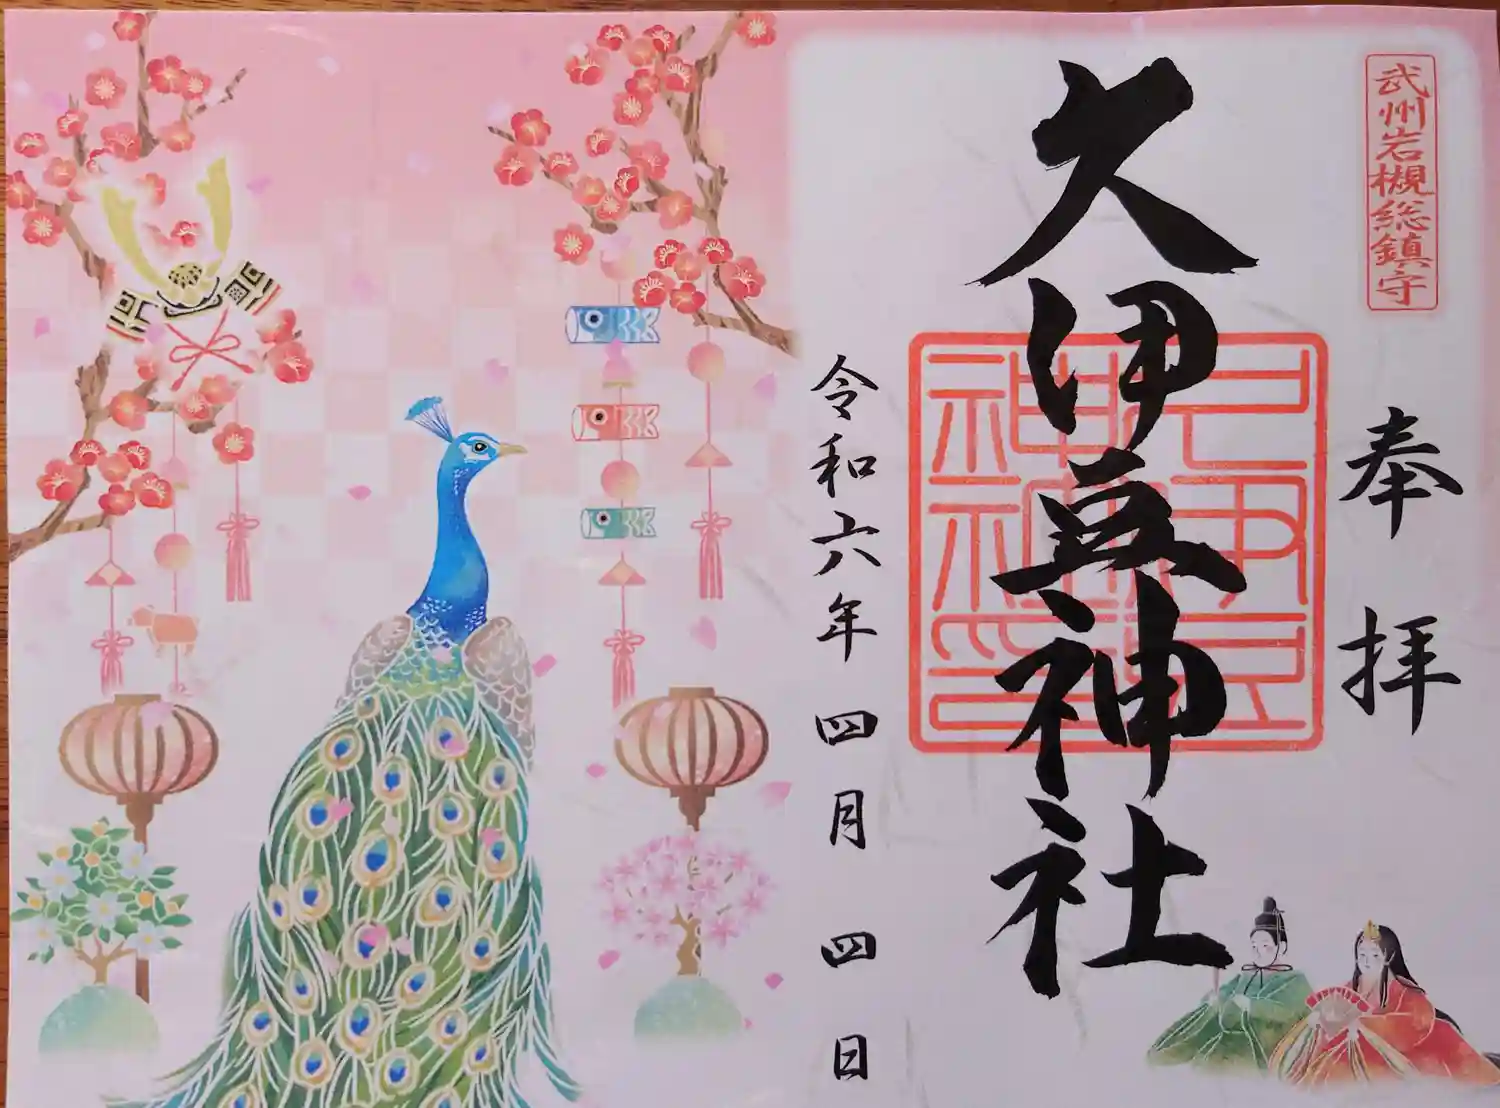 武州岩槻総鎮守
奉拝
久伊豆神社
久伊豆
神社印
令和六年四月四日